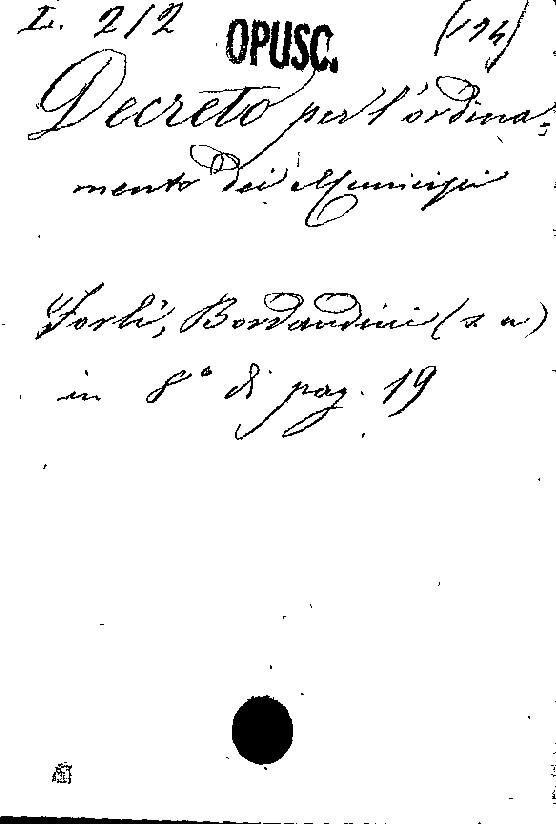 L. 2/2 OPUSC. (124)
Decreto per l'ordina=
mento dei Municipi
Forlì, Bordandini (s a)
in 8° di pag. 19